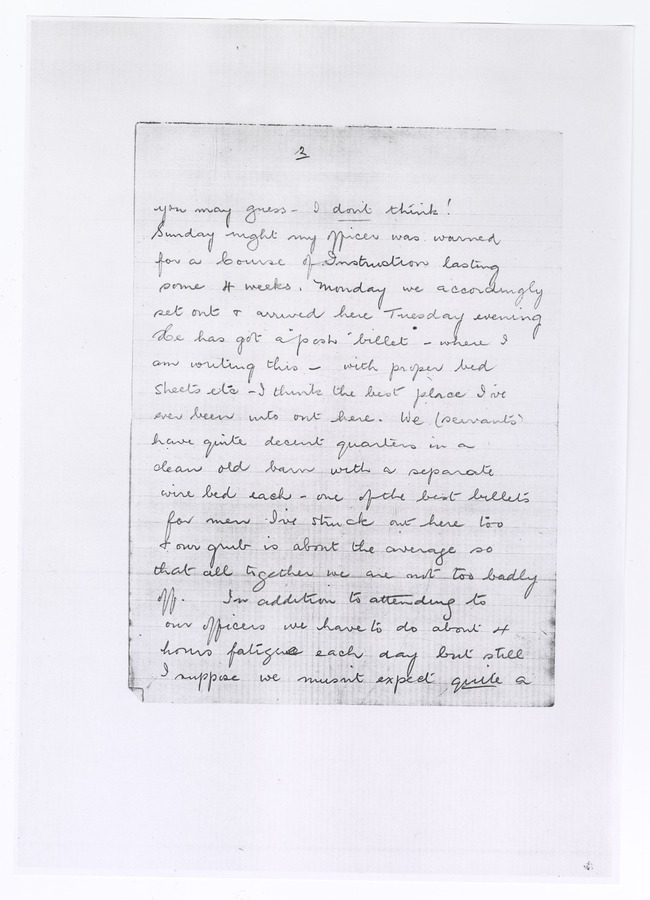 2
you may guess - I don't think!
Sunday night my officer was warned
for a Course of Instruction lasting
some 4 weeks. Monday we accordingly
set out & arrived here Tuesday evening
He has got a "posh" billet - where I
am writing this - with proper bed
sheets etc - I think the best place I've
ever been into out here. We (servants)
have quite decent quarters in a
clean old barn with a separate
wire bed each - one of the best billets
for men I've struck out here too
& our grub is about the average so
that all together we are not too badly
off. In addition to attending to
our officers we have to do about 4
hours fatigue each day but still
I suppose we musn't expect quite a